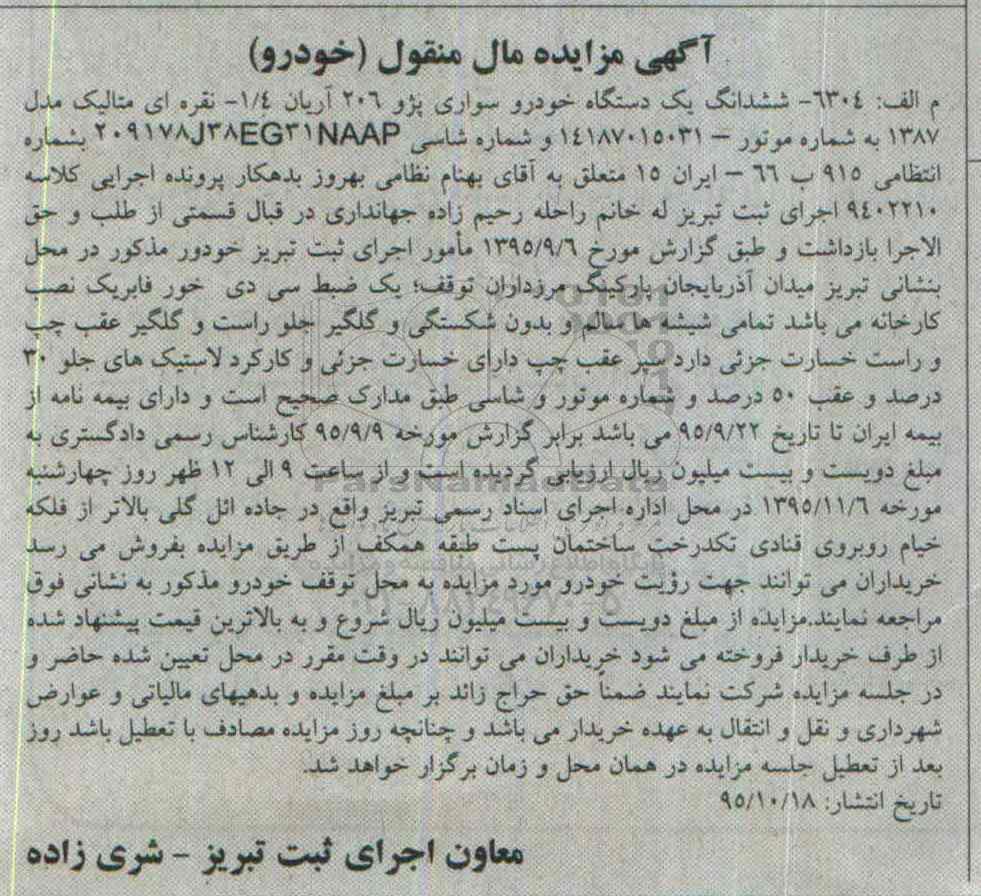 آگهی مزایده مال منقول (خودرو)
م الف: ٦٣٠٤- ششدانگ یک دستگاه خودرو سواری پژو ٢٠٦ آریان ١/٤- نقره ای متالیک مدل
١٣٨٧ به شماره موتور – ١٤١٨٧٠١٥٠٣١ و شماره شاسی ٢٠٩١٧٨J٣٨EG٣١NAAP بشماره
انتظامی ٩١٥ ب ٦٦ – ایران ١٥ متعلق به آقای بهنام نظامی بهروز بدهکار پرونده اجرایی کلاسه
٩٤٠٢٢١٠ اجرای ثبت تبریز له خانم راحله رحیم زاده جهانداری در قبال قسمتی از طلب و حق
الاجرا بازداشت و طبق گزارش مورخ ١٣٩٥/٩/٦ مأمور اجرای ثبت تبریز خودور مذکور در محل
بنشانی تبریز میدان آذربایجان پارکینگ مرزداران توقف؛ یک ضبط سی دی خور فابریک نصب
کارخانه می باشد تمامی شیشه ها سالم و بدون شکستگی و گلگیر جلو راست و گلگیر عقب چپ
و راست خسارت جزئی دارد سپر عقب چپ دارای خسارت جزئی و کارکرد لاستیک های جلو ٣٠
درصد و عقب ٥٠ درصد و شماره موتور و شاسی طبق مدارک صحیح است و دارای بیمه نامه از
بیمه ایران تا تاریخ ٩٥/٩/٢٢ می باشد برابر گزارش مورخه ٩٥/٩/٩ کارشناس رسمی دادگستری به
مبلغ دویست و بیست میلیون ریال ارزیابی گردیده است و از ساعت ٩ الی ١٢ ظهر روز چهارشنبه
مورخه ١٣٩٥/١١/٦ در محل اداره اجرای اسناد رسمی تبریز واقع در جاده ائل گلی بالاتر از فلکه
خیام روبروی قنادی تکدرخت ساختمان پست طبقه همکف از طریق مزایده بفروش می رسد
خریداران می توانند جهت رؤیت خودرو مورد مزایده به محل توقف خودرو مذکور به نشانی فوق
مراجعه نمایند.مزایده از مبلغ دویست و بیست میلیون ریال شروع و به بالاترین قیمت پیشنهاد شده
از طرف خریدار فروخته می شود خریداران می توانند در وقت مقرر در محل تعیین شده حاضر و
در جلسه مزایده شرکت نمایند ضمناً حق حراج زائد بر مبلغ مزایده و بدهیهای مالیاتی و عوارض
شهرداری و نقل و انتقال به عهده خریدار می باشد و چنانچه روز مزایده مصادف با تعطیل باشد روز
بعد از تعطیل جلسه مزایده در همان محل و زمان برگزار خواهد شد.
تاریخ انتشار: ٩٥/١٠/١٨
معاون اجرای ثبت تبریز – شری زاده